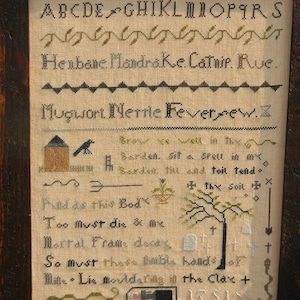 ABCDEFGHIKLMNOPQRS
Henbane. Mandrake. Catnip. Rue.
Mugwort Nettle Feverfew.
Grow ye well in thy
Garden. sit a spell in my
Garden. till and toil tend
thy soil
And as this Body
Too must die & my
Mortal Frame decay
So must those nimble hands of
Mine Lie mouldering in the Clay